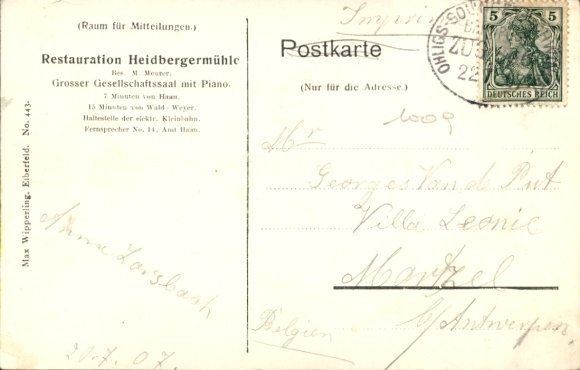 (Raum für Mitteilungen.)
Restauration Heidbergermühle
Bes. M. Meurer.
Grosser Gesellschaftssaal mit Piano.
7 Minuten von Haan.
15 Minuten von Wald-Weyer.
Haltestelle der elektr. Kleinbahn.
Fernsprecher No. 14, Amt Haan.
Max Wipperling, Elberfeld. No. 443.
Anna Larsbach
20.7.07.
Postkarte
(Nur für die Adresse.)
OHLIGS-
22
5 5
DEUTSCHES REICH
1009
Mr
Georges Van de Put
Villa Leonie
Mortzel
b/Antwerpen
Belgien